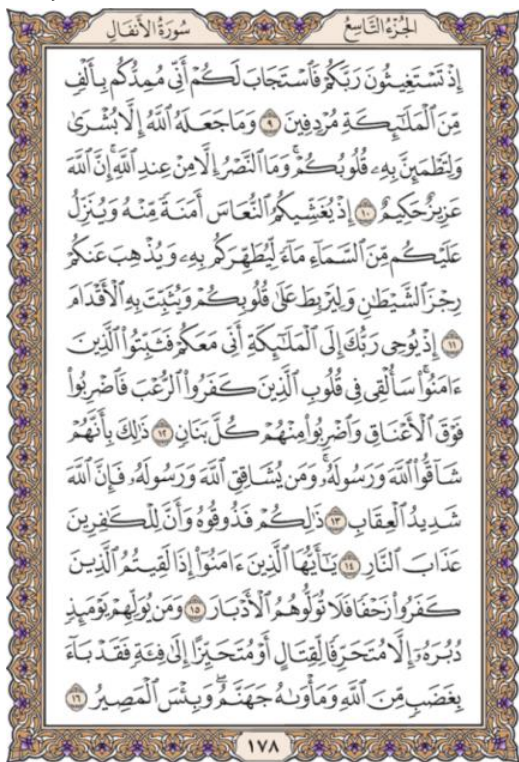 سُورَةُ الأَنفَالِ الجُزْءُ التَّاسِعُ
إِذْ تَسْتَغِيثُونَ رَبَّكُمْ فَٱسْتَجَابَ لَكُمْ أَنِّي مُمِدُّكُم بِأَلْفٍ
مِّنَ ٱلْمَلَٰٓئِكَةِ مُرْدِفِينَ ٩ وَمَا جَعَلَهُ ٱللَّهُ إِلَّا بُشْرَىٰ
وَلِتَطْمَئِنَّ بِهِۦ قُلُوبُكُمْ ۚ وَمَا ٱلنَّصْرُ إِلَّا مِنْ عِندِ ٱللَّهِ ۚ إِنَّ ٱللَّهَ
عَزِيزٌ حَكِيمٌ ١٠ إِذْ يُغَشِّيكُمُ ٱلنُّعَاسَ أَمَنَةً مِّنْهُ وَيُنَزِّلُ
عَلَيْكُم مِّنَ ٱلسَّمَآءِ مَآءً لِّيُطَهِّرَكُم بِهِۦ وَيُذْهِبَ عَنكُمْ
رِجْزَ ٱلشَّيْطَٰنِ وَلِيَرْبِطَ عَلَىٰ قُلُوبِكُمْ وَيُثَبِّتَ بِهِ ٱلْأَقْدَامَ
١١ إِذْ يُوحِي رَبُّكَ إِلَى ٱلْمَلَٰٓئِكَةِ أَنِّي مَعَكُمْ فَثَبِّتُوا۟ ٱلَّذِينَ
ءَامَنُوا۟ ۚ سَأُلْقِي فِي قُلُوبِ ٱلَّذِينَ كَفَرُوا۟ ٱلرُّعْبَ فَٱضْرِبُوا۟
فَوْقَ ٱلْأَعْنَاقِ وَٱضْرِبُوا۟ مِنْهُمْ كُلَّ بَنَانٍ ١٢ ذَٰلِكَ بِأَنَّهُمْ
شَآقُّوا۟ ٱللَّهَ وَرَسُولَهُۥ ۚ وَمَن يُشَاقِقِ ٱللَّهَ وَرَسُولَهُۥ فَإِنَّ ٱللَّهَ
شَدِيدُ ٱلْعِقَابِ ١٣ ذَٰلِكُمْ فَذُوقُوهُ وَأَنَّ لِلْكَٰفِرِينَ
عَذَابَ ٱلنَّارِ ١٤ يَٰٓأَيُّهَا ٱلَّذِينَ ءَامَنُوٓا۟ إِذَا لَقِيتُمُ ٱلَّذِينَ
كَفَرُوا۟ زَحْفًا فَلَا تُوَلُّوهُمُ ٱلْأَدْبَارَ ١٥ وَمَن يُوَلِّهِمْ يَوْمَئِذٍ
دُبُرَهُۥٓ إِلَّا مُتَحَرِّفًا لِّقِتَالٍ أَوْ مُتَحَيِّزًا إِلَىٰ فِئَةٍ فَقَدْ بَآءَ
بِغَضَبٍ مِّنَ ٱللَّهِ وَمَأْوَىٰهُ جَهَنَّمُ ۖ وَبِئْسَ ٱلْمَصِيرُ ١٦
١٧٨